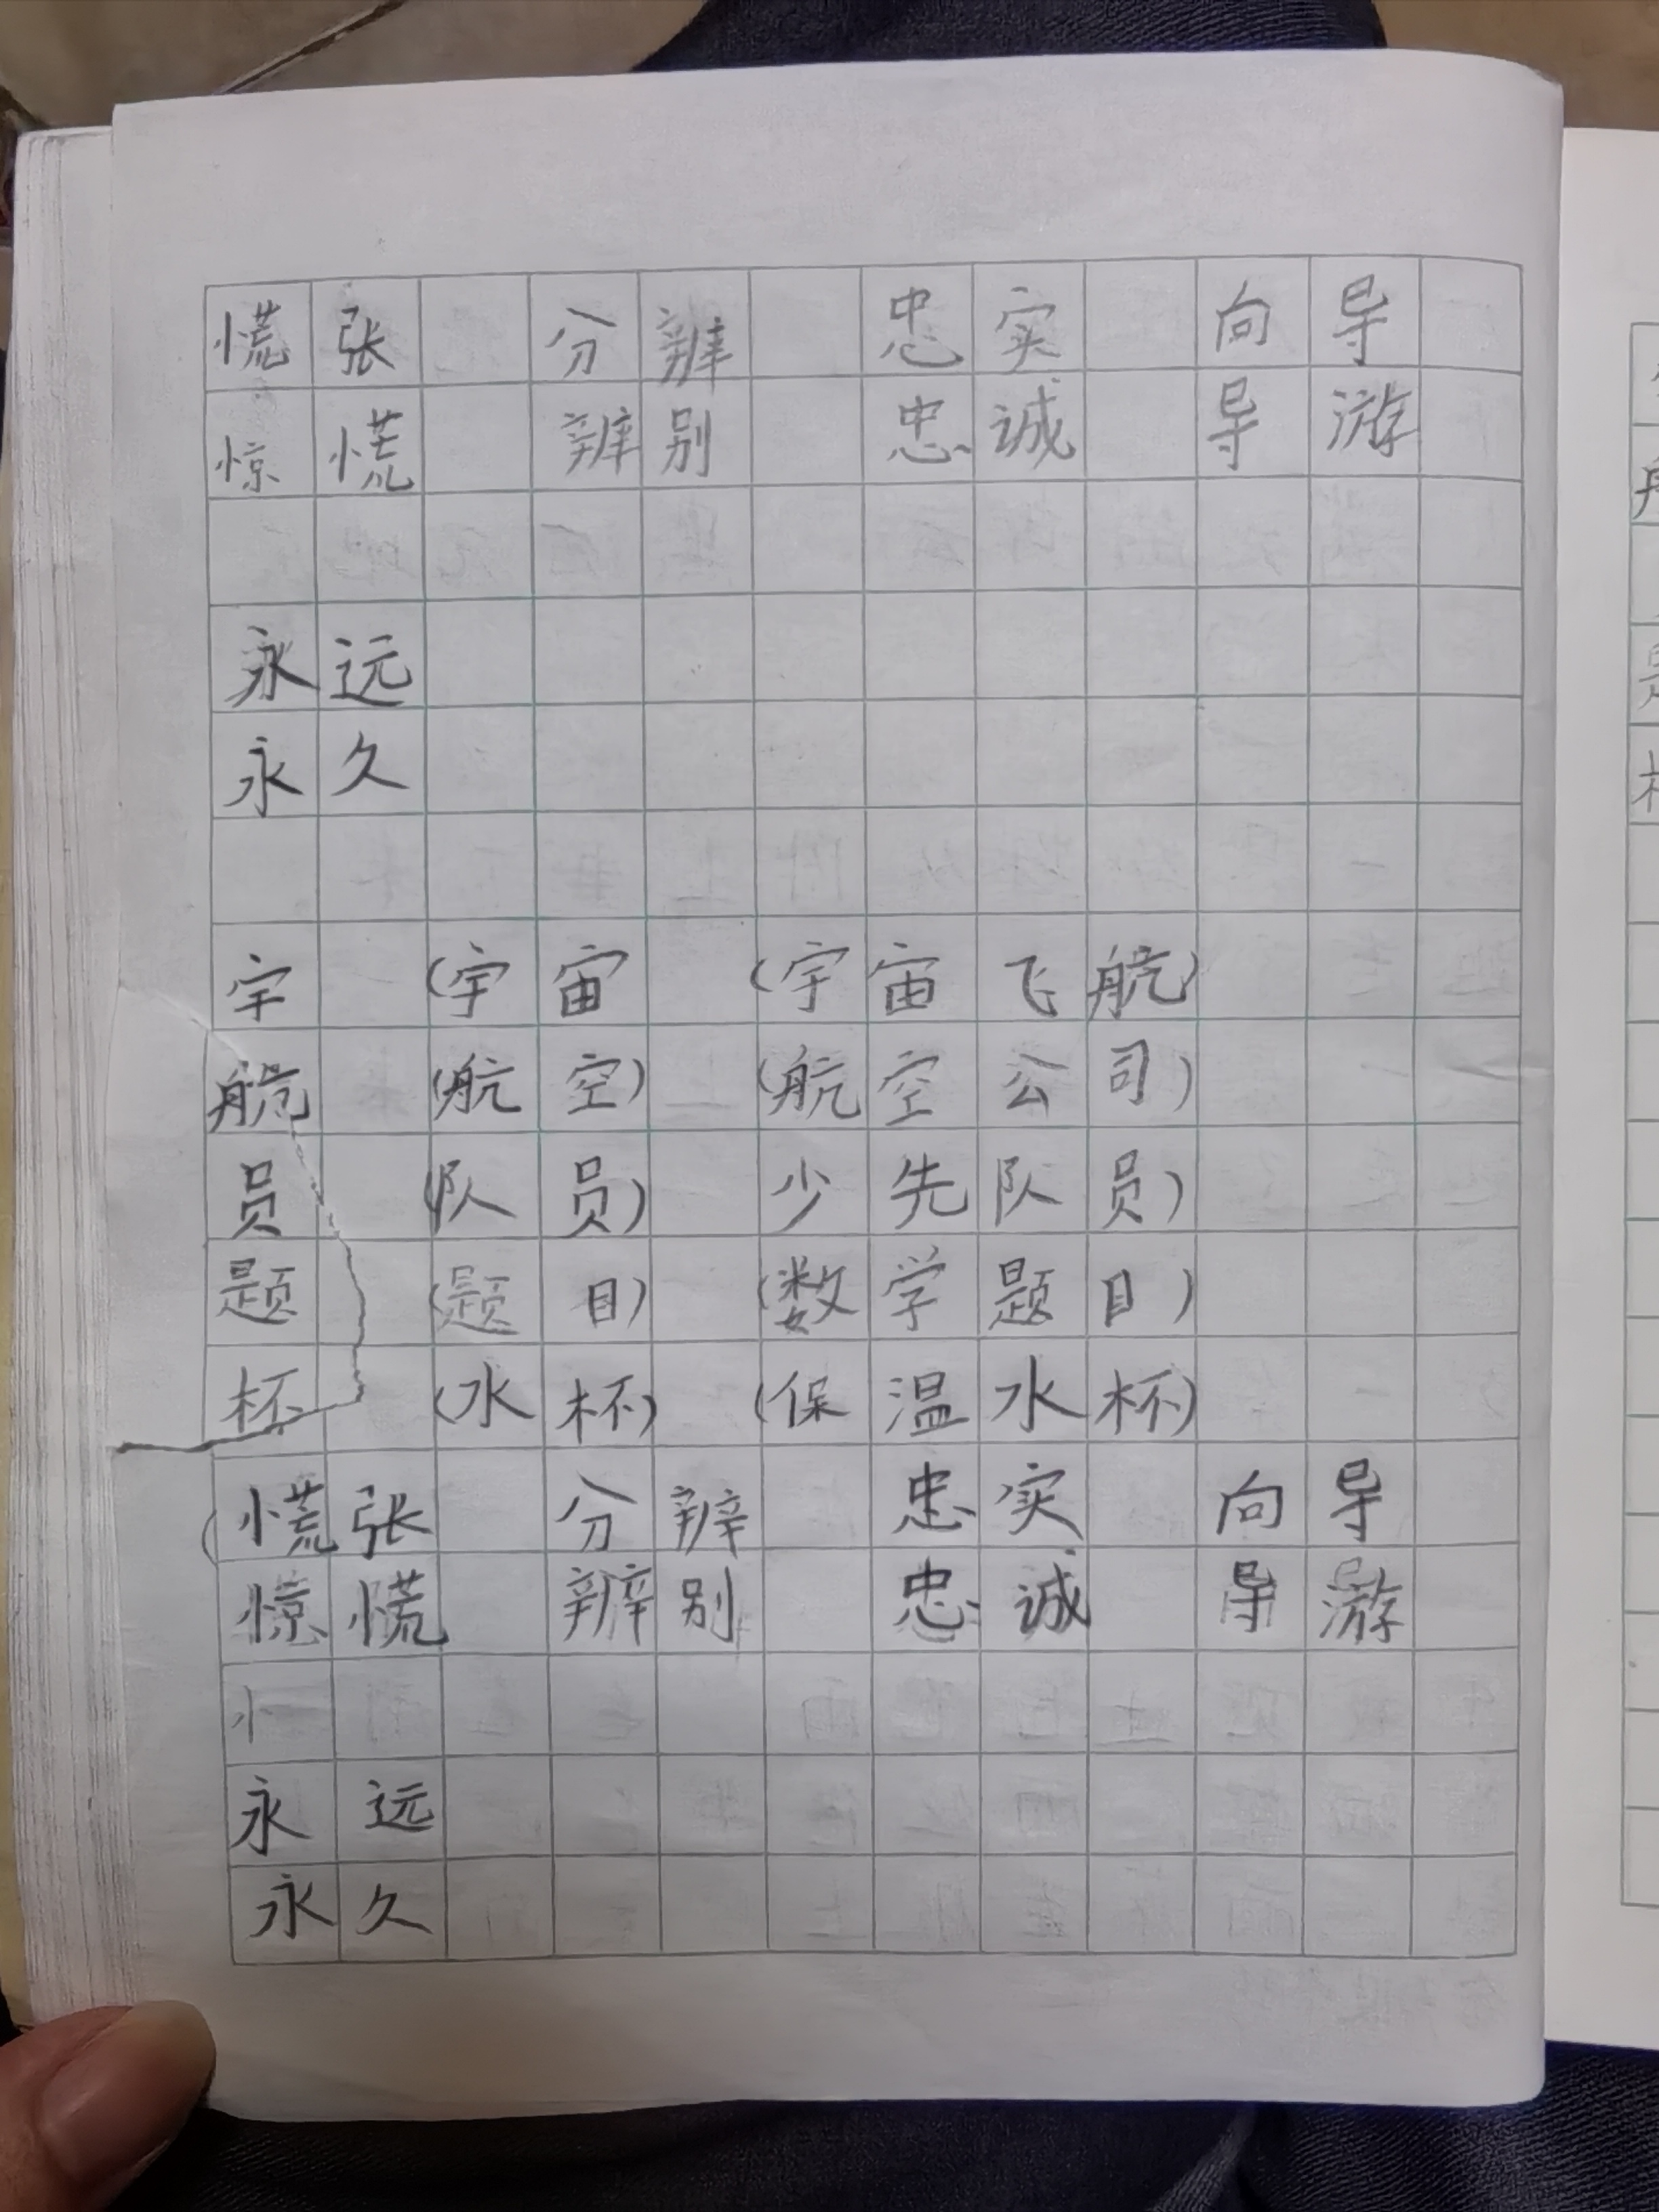 慌张 分辨 忠实 向导
惊慌 辨别 忠诚 导游
永远
永久
宇 (宇宙 (宇宙飞航)
航 (航空) (航空公司)
员 (队员) 少先队员)
题 (题目) (数学题目)
杯 (水杯) (保温水杯)
(慌张 分辨 忠实 向导
惊慌 辨别 忠诚 导游
忄
永远
永久